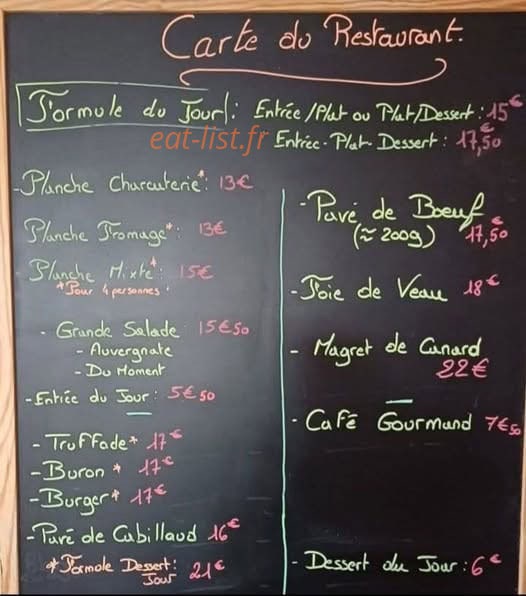 Carte du Restaurant.
Formule du Jour: Entrée/Plat ou Plat/Dessert: 15€
eat-list.fr Entrée-Plat-Dessert: 17,50€
- Planche Charcuterie*: 13€
Planche Fromage*: 13€
Planche Mixte*: 15€
*Pour 4 personnes
- Grande Salade: 15€50
- Auvergnate
- Du Moment
- Entrée du Jour: 5€50
- Truffade* 17€
- Buron* 17€
- Burger* 17€
- Pavé de Cabillaud 16€
*Formule Dessert: 21€
Jour
- Pavé de Boeuf
(≈ 200g) 17,50€
- Foie de Veau 18€
- Magret de Canard
22€
- Café Gourmand 7€50
- Dessert du Jour: 6€